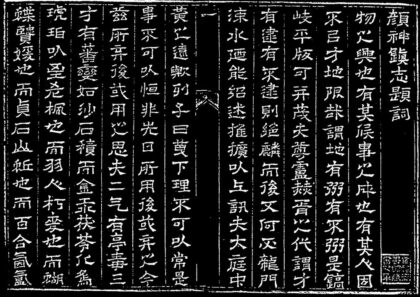 顏神鎮志題詞
物之興也有其候事之成也有其人固
不㠯才地限哉謂地有弼有不弼是鎬
岐平版可弃夫夢胥以代謂才
有逮有不逮則絕麟而後又何不龍門
涑水迺能紹述推擴以上訊夫大庭中
黃之遠歟列子曰下理不可以常是
事不可以恒非先日所用後或弃之今
茲所弃後或用之思夫二气有亭毒三
才有蕃變如沙石積而金茯苓化為
琥珀以至老楓也而羽人朽麥也而蝴
蝶賢媛也而貞石山蚯也而百合氤氳